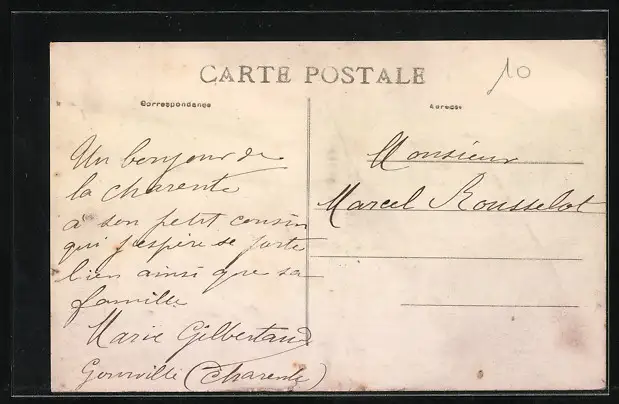 CARTE POSTALE
10
Correspondance
Adresse
Un bonjour de
la charente
a son petit cousin
qui j'espère se porte
bien ainsi que sa
famille
Marie Gilbertaud
Gourville (Charente)
Monsieur
Marcel Rousselot